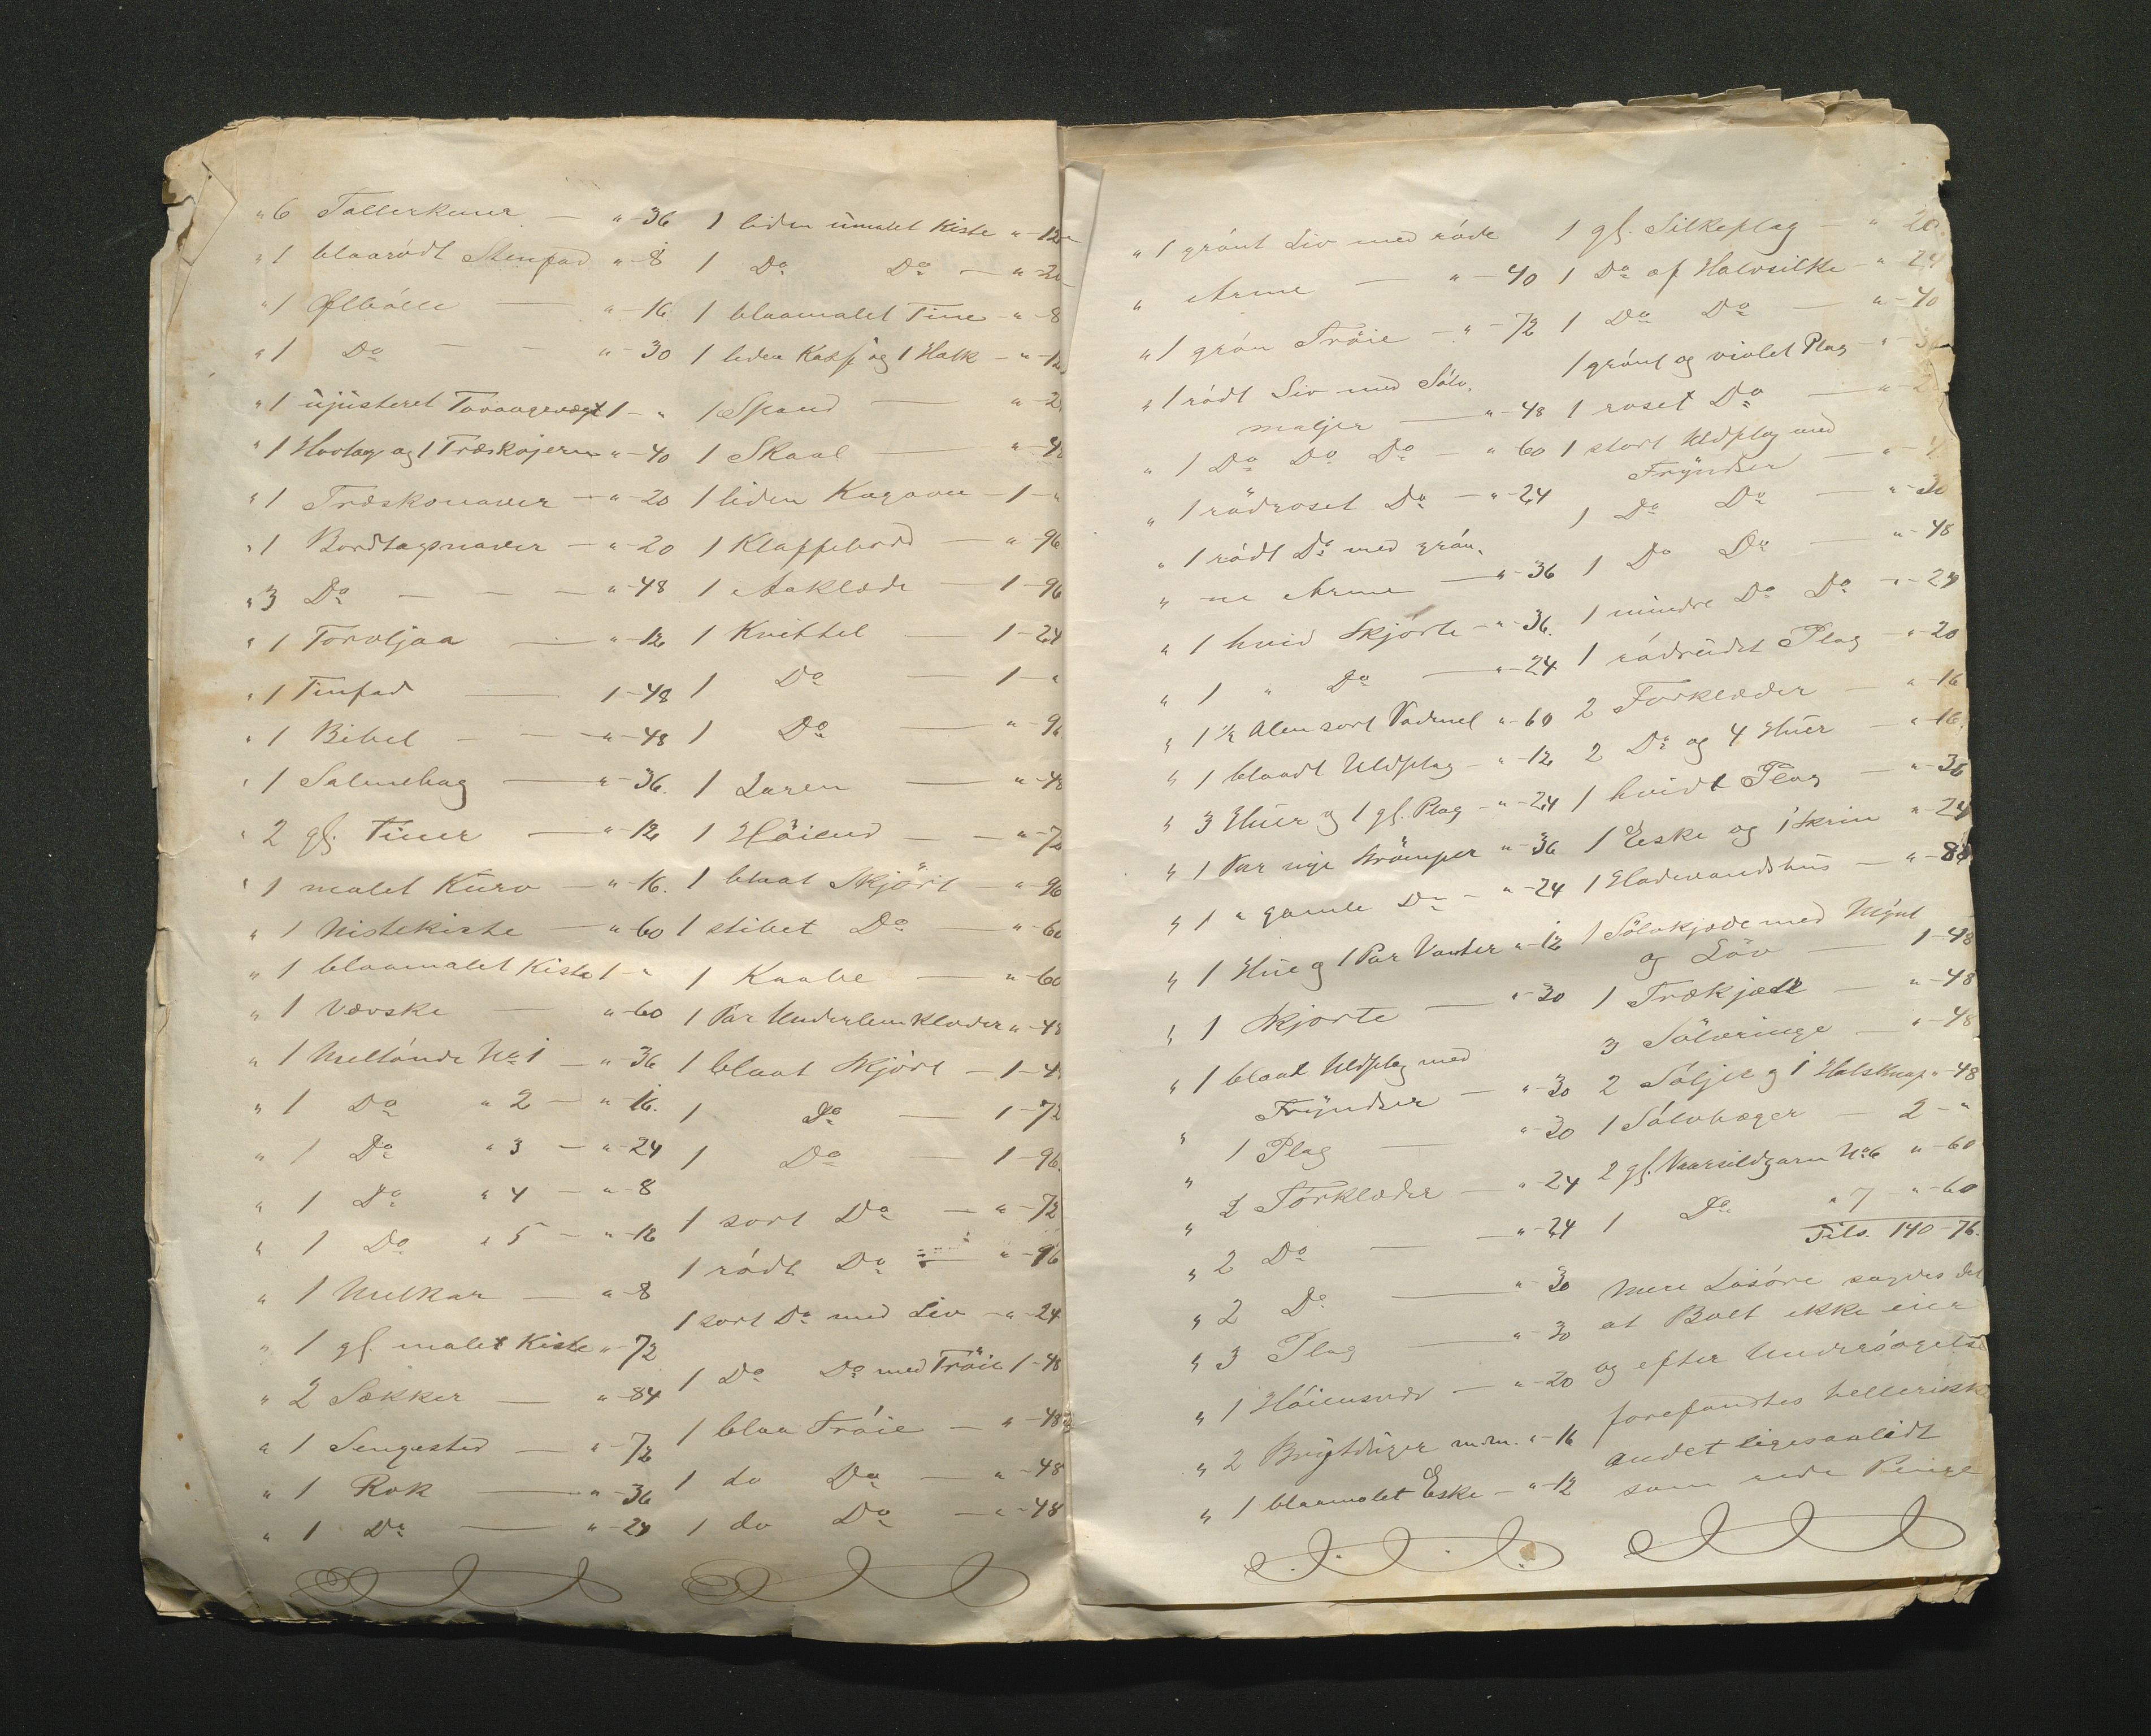 " 6 Tallerkener — " - 36
" 1 blaarödt Stenfad " - 8
" 1 Ølbölle — " - 16
" 1 Do — — " - 30
" 1 ujusteret 1 - "
" 1 Hovtag og 1 Træskojern " - 40
" 1 Træskonaver — " - 20
" 1 Bordtagsnaver — " - 20
" 3 Do — — — " - 48
" 1 Torvljaa — " - 12
" 1 Tinfad — 1 - 48
" 1 Bibel — — " - 48
" 1 Salmebog — " - 36.
" 2 gl. Tiner — " - 12
" 1 malet Kurv — " - 16.
" 1 Nistekiste — " - 60
" 1 blaamalet Kiste 1 - "
" 1 Vævske — " - 60
" 1 Meltönde No 1 — " - 36
" 1 Do " 2 — " - 16.
" 1 Do " 3 — " - 24
" 1 Do " 4 — " - 8
" 1 Do " 5 — " - 12
" 1 Melkar — " - 8
" 1 gl. malet Kiste " - 72
" 2 Sækker — " - 84
" 1 Sengested — " - 72
" 1 Rok — " - 36
" 1 Do — " - 24
1 liden umalet Kiste " - 12
1 Do Do — " - 20
1 blaamalet Tine — " - 8
1 liden Kasse og 1 Halk — " - 12
1 Spand — " - 2
1 Skaal — " - 4
1 liden — 1 - "
1 Klaffebord — " - 96
1 Aaklæde — 1 - 96
1 Kvittel — 1 - 24
1 Do — 1 - "
1 Do — " - 96
1 Laren — " - 48
1 Höiend — — " - 72
1 blaat Skjört — " - 96
1 stibet Do — " - 60
1 Kaabe — " - 60
1 Par Underbenklæder " - 48
1 blaat Skjört — 1 - 4
1 Do — 1 - 72
1 Do — 1 - 96.
1 sort Do — " - 72
1 rödt Do — " - 96
1 sort Do med Liv — " - 24
1 Do Do med Tröie 1 - 48
1 blaa Tröie — " - 48
1 do Do — " - 48
1 do Do — " - 48
" 1 grönt Liv med röde
" Arme — " - 40
" 1 grön Tröie — " - 72
" 1 rödt Liv med Sölv-
maljer — " - 48
" 1 Do Do Do — " 60
" 1 rödroset Do — " - 24
" 1 rödt Do med grön-
" ne Arme — " - 36
" 1 hvid Skjorte — " - 36.
" 1 " Do — " - 24
" 1 ½ Alen sort Vadmel " - 60
" 1 blaadt Uldplag — " - 12
" 3 Huer og 1 gl. Plag — " - 24
" 1 Par nye Strömper " - 36
" 1 " gamle Do — " - 24
" 1 Hue og 1 Par Vanter " - 12
" 1 Skjorte — " - 30
" 1 blaat Uldplag med
" Fryndser — " - 30
" 1 Plag — " - 30
" 2 Forklæder — " - 24
" 2 Do — " - 24
" 2 Do — " - 30
" 3 Plag — " - 30
" 1 Höiensvær — " - 20
" 2 Brystduger m.m. " - 16
" 1 blaamalet Eske — " - 12
1 gl. Silkeplag — " 20.
1 Do af Halvsilke — " 24
1 Do Do — " - 40
1 grönt og violet Plag — " - 3
1 roset Do — " - 2
1 stort Uldplag med
Fryndser — " - 1
1 Do Do — " - 30
1 Do Do — " - 48
1 mindre Do Do — " - 24
1 rödrudet Plag — " - 20
2 Forklæder — " - 16
2 Do og 4 Huer — " - 16.
1 hvidt Plag — " - 36
1 Eske og 1 Skrin " - 24
1 Hadevandshus — " - 84
1 Sölvkjæde med Mynt
og Löv — 1 - 48
1 Trækjæde — " - 48
3 Sölvringe — " - 48
2 Söljer og 1 Halsknap " - 48
1 Sölvbæger — 2 - "
2 gl. Vaarsildgarn No 6 " - 60
1 Do " 7 — " - 60
Tils. 140 - 76.
Mere Lösöre sagdes det
at Boet ikke eier
og efter Undersögelse
forefandtes heller ikke
andet ligesaalidt
som rede Penge